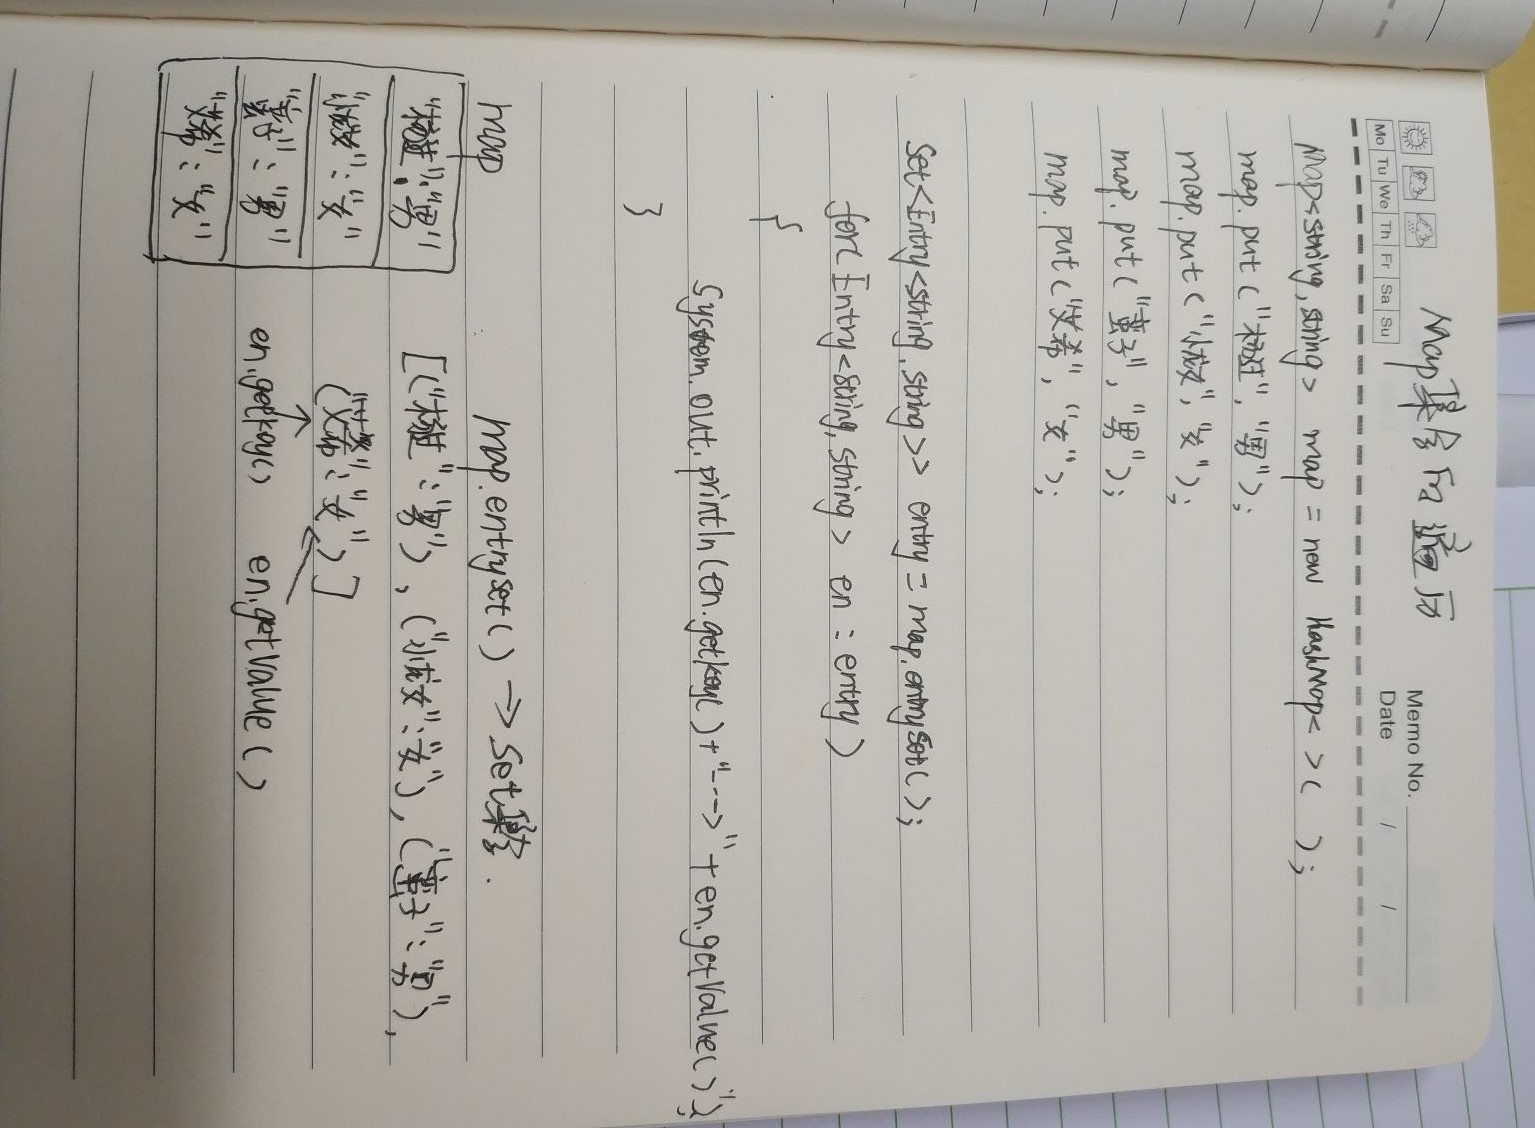 Map集合的遍历
Memo No.
Mo Tu We Th Fr Sa Su
Date / /
Map<string,string> map = new HashMap< >( );
map.put("杨过","男");
map.put("小龙女","女");
map.put("","男");
map.put("","女");
Set<Entry<string,string>> entry = map.entrySet();
for(Entry<string,string> en : entry)
{
System.out.println(en.getkey()+"--->"+en.getValue()");
}
map map.entryset() → Set集合.
"杨过":"男" [("杨过":"男"),("小龙女":"女"),("":"男"),
"小龙女":"女" ("":"女")]
"":"男" en.getkey() en.getValue()
"":"女"